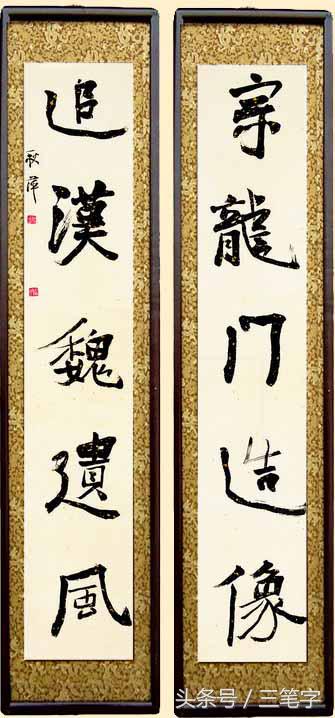 宗龍门造像
追漢魏遺風
秋萍
头条号/三笔字